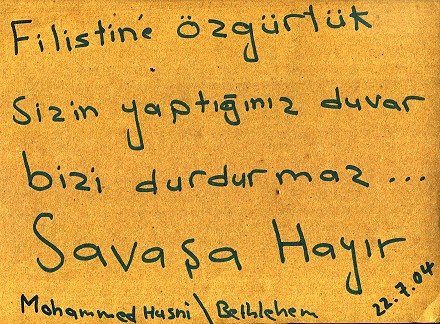 Filistin'e özgürlük
sizin yaptığınız duvar
bizi durdurmaz...
Savaşa Hayır
Mohammed Husni \ Bethlehem
22.7.04